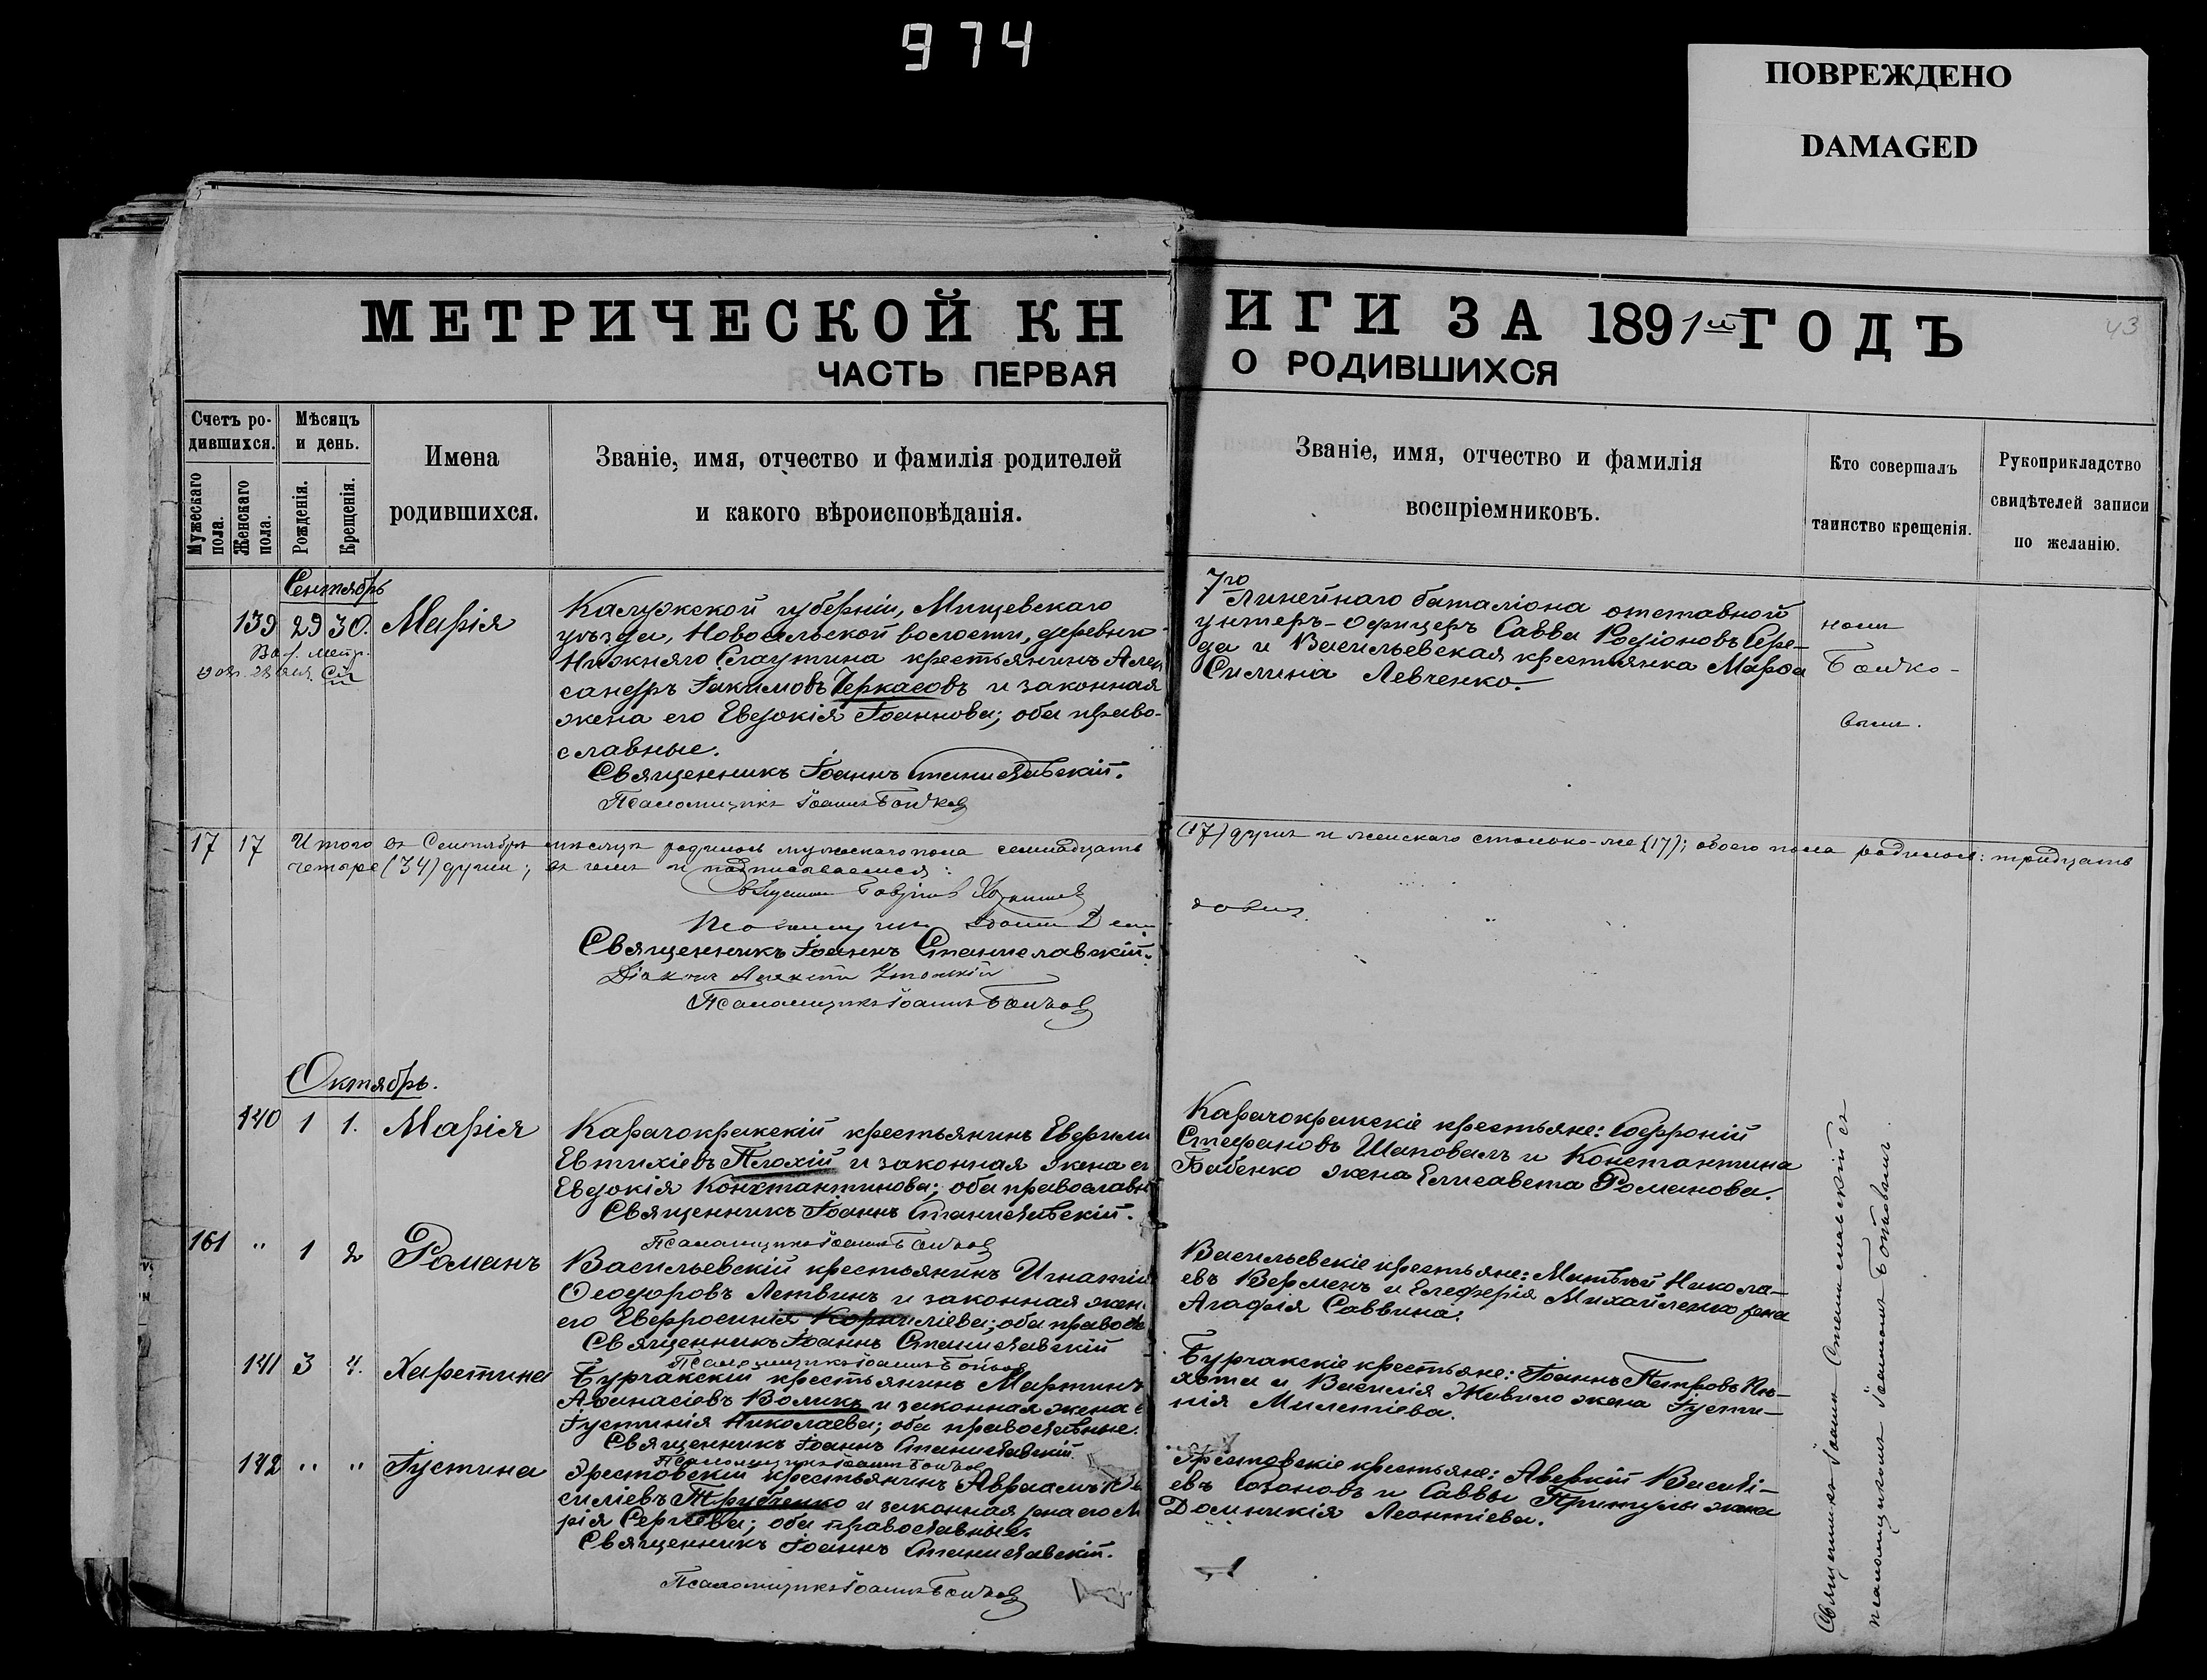 974
ПОВРЕЖДЕНО
DAMAGED
МЕТРИЧЕСКОЙ КН
ИГИ ЗА 1891й ГОДЪ
43
ЧАСТЬ ПЕРВАЯ
О РОДИВШИХСЯ
Счетъ ро-
дившихся.
Мужескаго пола.
Женскаго пола.
Мѣсяцъ
и день.
Рожденія.
Крещенія.
Имена
родившихся.
Званіе, имя, отчество и фамилія родителей
и какого вѣроисповѣданія.
Званіе, имя, отчество и фамилія
воспріемниковъ.
Кто совершалъ
таинство крещенія.
Рукоприкладство
свидѣтелей записи
по желанію.
Сентябрь
139 29 30. Марія
Калужской губерніи, Мищевскаго
уѣзда, Новосельской волости, деревни
Нижняго крестьянинъ Алек
сандръ Іакимовъ Черкасовъ и законная
жена его Евдокія Іоаннова; оба право-
славные.
Священникъ Іоаннъ Станиславскій.
Псаломщикъ Іоаннъ Бойков
7го Линейнаго баталіона отставной
унтеръ-офицеръ Савва Родіоновъ Сере-
да и Васильевская крестьянка Марфа
Силина Левченко.
Бойко-
вымъ.
17 17 Итого въ Сентябрѣ мѣсяцѣ родилось мужескаго пола семнадцать
(17) душъ и женскаго столько-же (17); обоего пола родилось: тридцать
четыре (34) души; въ чемъ и подписываемся:
Священникъ Іоаннъ Станиславскій.
Псаломщикъ Іоаннъ Бойков
Октябрь.
140 1 1. Марія
Карачокракскій крестьянинъ
Евтихіевъ Плохій и законная жена ег
Евдокія Константинова; оба православн
Священникъ Іоаннъ Станиславскій.
Псаломщикъ Іоаннъ Бойков
Карачокракскіе крестьяне: Софроній
Стефановъ Шаповалъ и Константина
Бабенко жена Елисавета Романова.
161 " 1 2 Романъ
Васильевскій крестьянинъ Игнатій
Ѳеодоровъ Летвинъ и законная жен
его Евфросинія Корнилева; оба правосл
Священникъ Іоаннъ Станиславскій
Псаломщикъ Іоаннъ Бойков
Васильевскіе крестьяне: Матѳей Никола-
евъ Верменъ и Елефѳерія Михайленко жена
Агафія Саввина.
141 3 4. Харитина
Бурчакскій крестьянинъ Мартинъ
Аѳанасіевъ Воликъ и законная жена
Іустинія Николаева; оба православные.
Священникъ Іоаннъ Станиславскій
Псаломщикъ Іоаннъ Бойков
Бурчакскіе крестьяне: Іоаннъ Петровъ
и Василія Живило жена Іусти-
нія Милетіева.
142 " " Іустина
Эрестовскій крестьянинъ Авраамъ Ва
силіевъ Трубченко и законная жена его М
рія Сергѣева; оба православные.
Священникъ Іоаннъ Станиславскій.
Псаломщикъ Іоаннъ Бойков
Эрестовскіе крестьяне: Аверкій Василі-
евъ Созоновъ и Саввы Притулы жена
Домникія Леонтіева.
Священникъ Іоаннъ Станиславскій съ
псаломщикомъ Іоанномъ Бойковымъ.